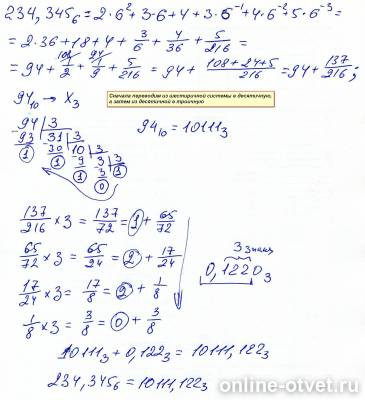 234,345₆ = 2·6² + 3·6 + 4 + 3·6⁻¹ + 4·6⁻² + 5·6⁻³ =
= 2·36 + 18 + 4 + 3/6 + 4/36 + 5/216 =
= 94 + 1/2 + 1/9 + 5/216 = 94 + (108+24+5)/216 = 94 + 137/216;
94₁₀ → X₃
Сначала переводим из шестиричной системы в десятичную,
а затем из десятичной в троичную
94 | 3
93 31 | 3
1 30 10 | 3
1 9 3 | 3
1 3 1
0
94₁₀ = 10111₃
137/216 × 3 = 137/72 = 1 + 65/72
65/72 × 3 = 65/24 = 2 + 17/24
17/24 × 3 = 17/8 = 2 + 1/8
1/8 × 3 = 3/8 = 0 + 3/8
3 знака
0,1220₃
10111₃ + 0,122₃ = 10111,122₃
234,345₆ = 10111,122₃
online-otvet.ru